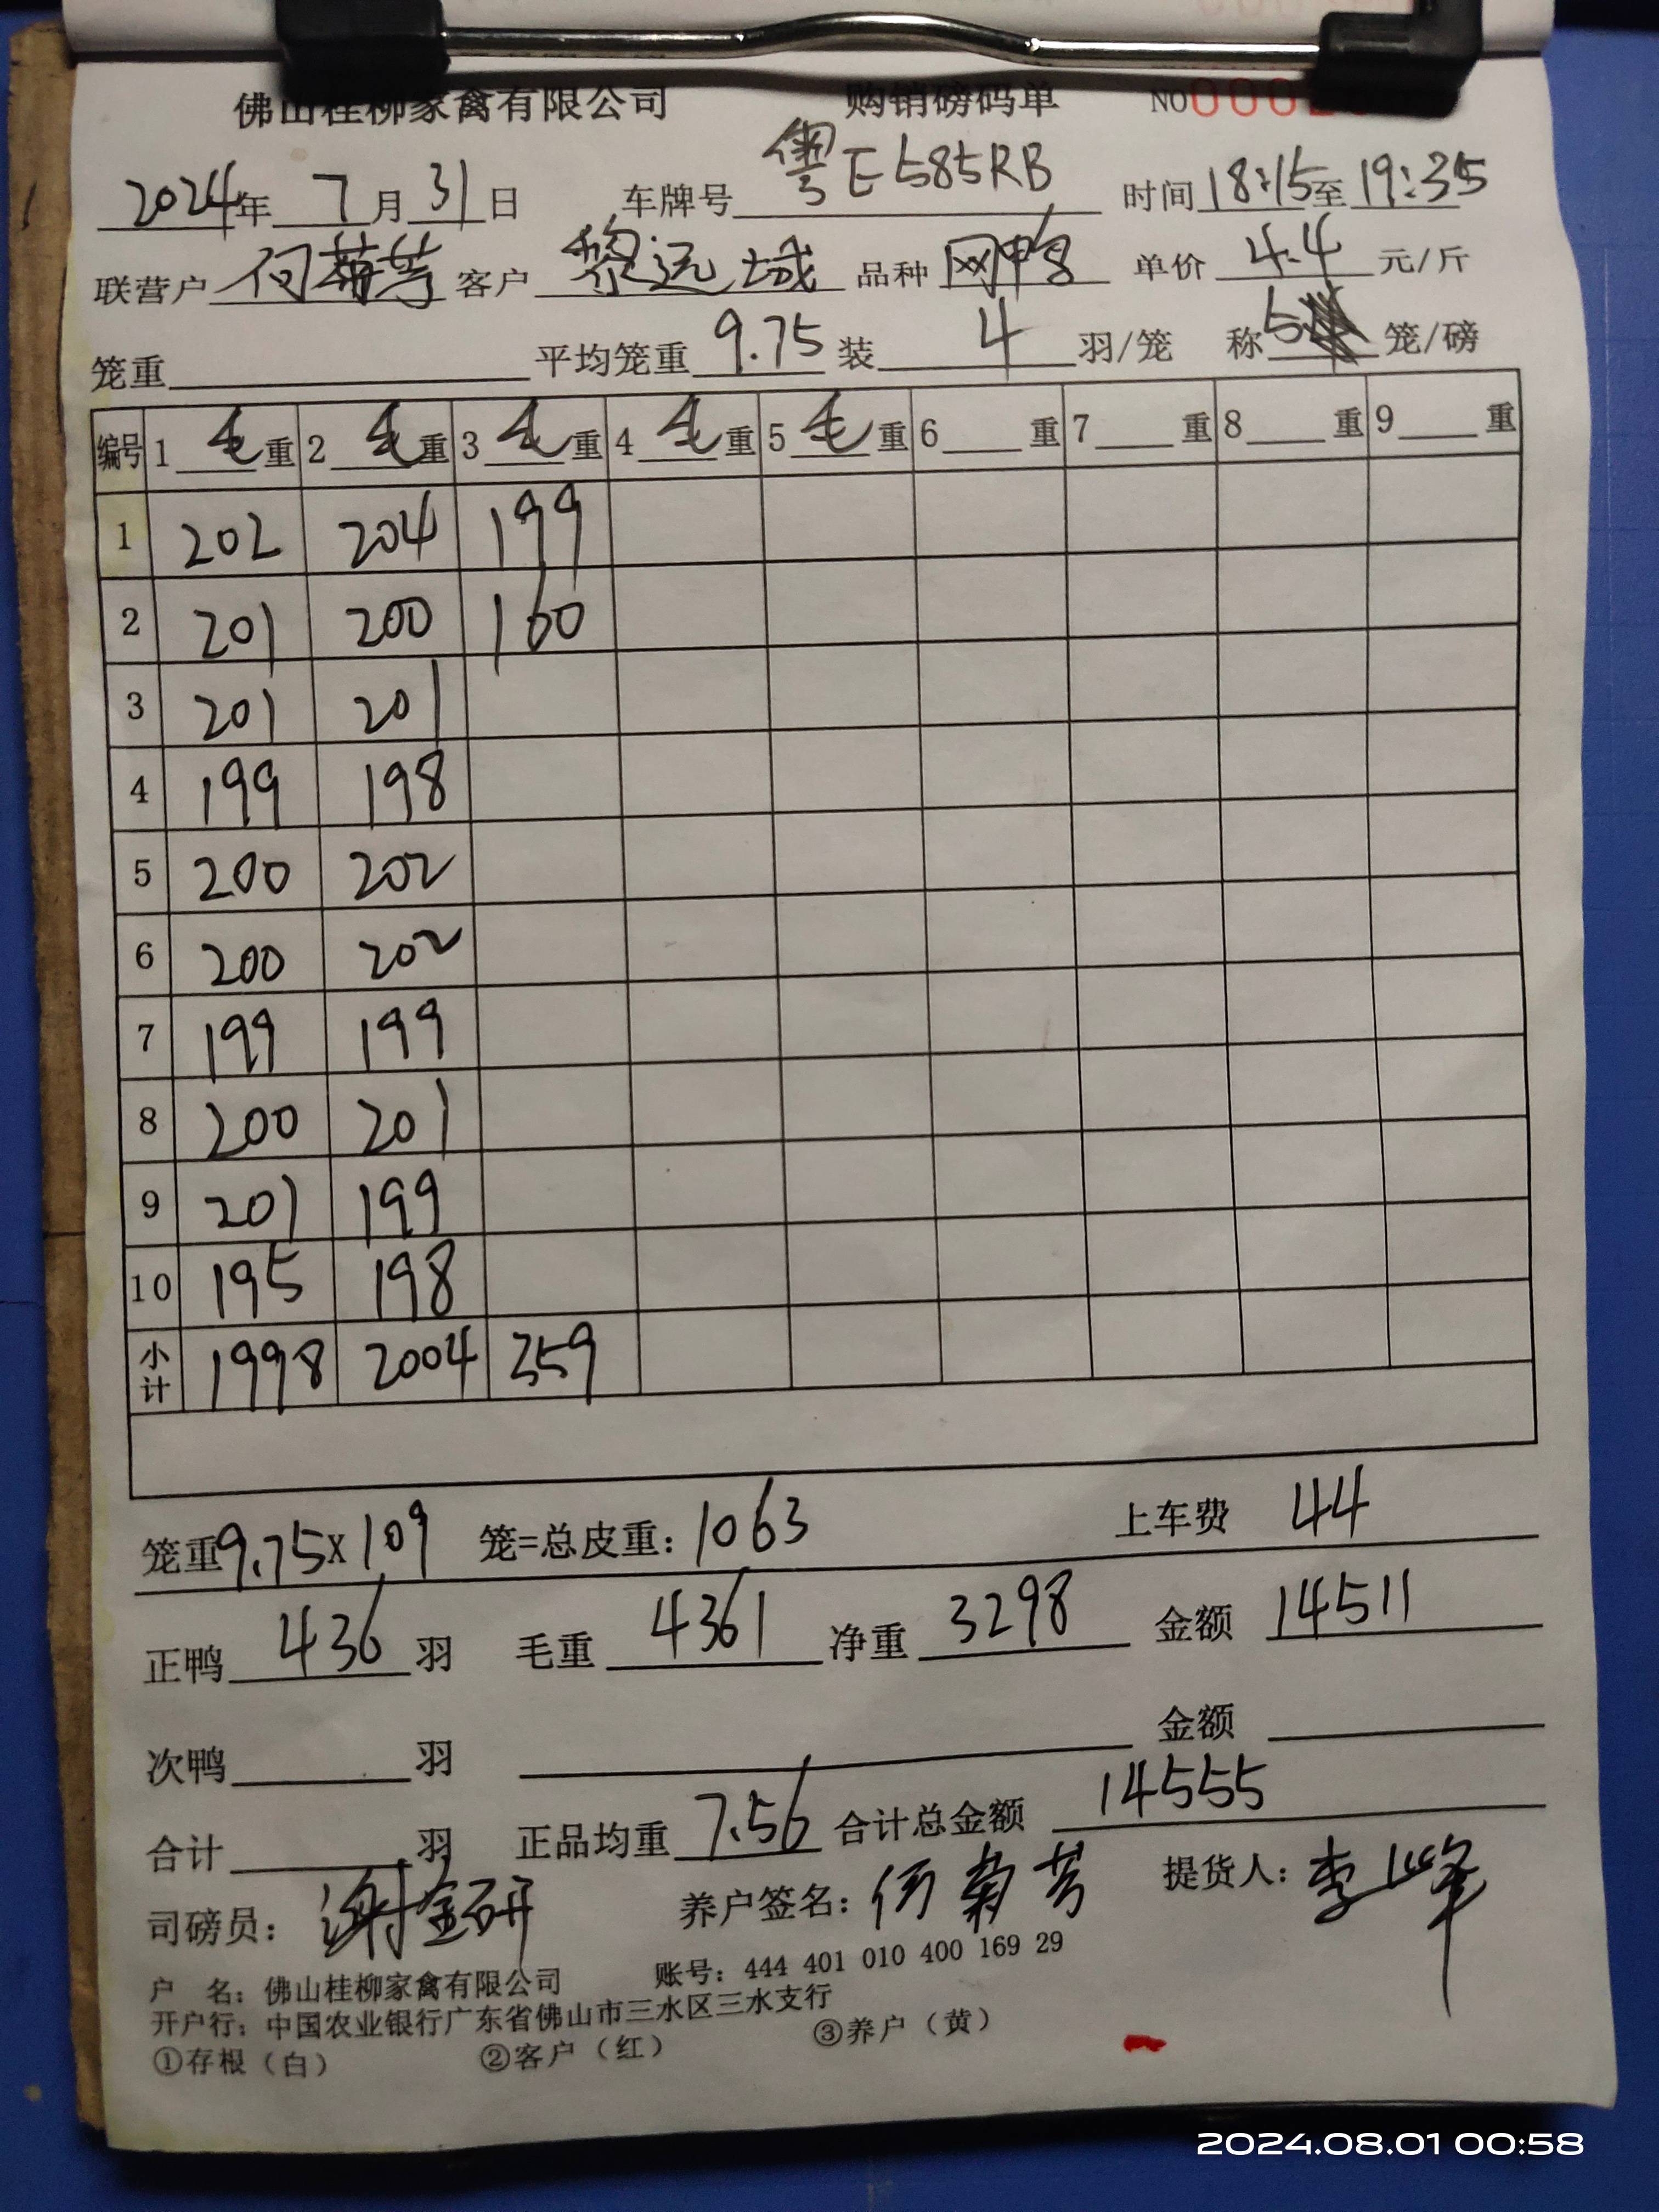 佛山桂柳家禽有限公司 购销磅码单 NO000
2024年 7月31日 车牌号 粤E585RB 时间18:15至19:35
联营户 何菊芳 客户 黎远城 品种 网鸭 单价 4.4 元/斤
笼重 平均笼重 9.75 装 4 羽/笼 称 5 笼/磅
编号 1 毛重 2 毛重 3 毛重 4 毛重 5 毛重 6 重 7 重 8 重 9 重
1 202 204 199
2 201 200 160
3 201 201
4 199 198
5 200 202
6 200 202
7 199 199
8 200 201
9 201 199
10 195 198
小计 1998 2004 359
笼重9.75X109 笼=总皮重：1063 上车费 44
正鸭 436 羽 毛重 4361 净重 3298 金额 14511
次鸭 羽 金额
合计 羽 正品均重 7.56 合计总金额 14555
司磅员： 谢金研 养户签名：何菊芳 提货人：李峰
户 名：佛山桂柳家禽有限公司 账号：444 401 010 400 169 29
开户行：中国农业银行广东省佛山市三水区三水支行
①存根（白） ②客户（红） ③养户（黄）
2024.08.01 00:58